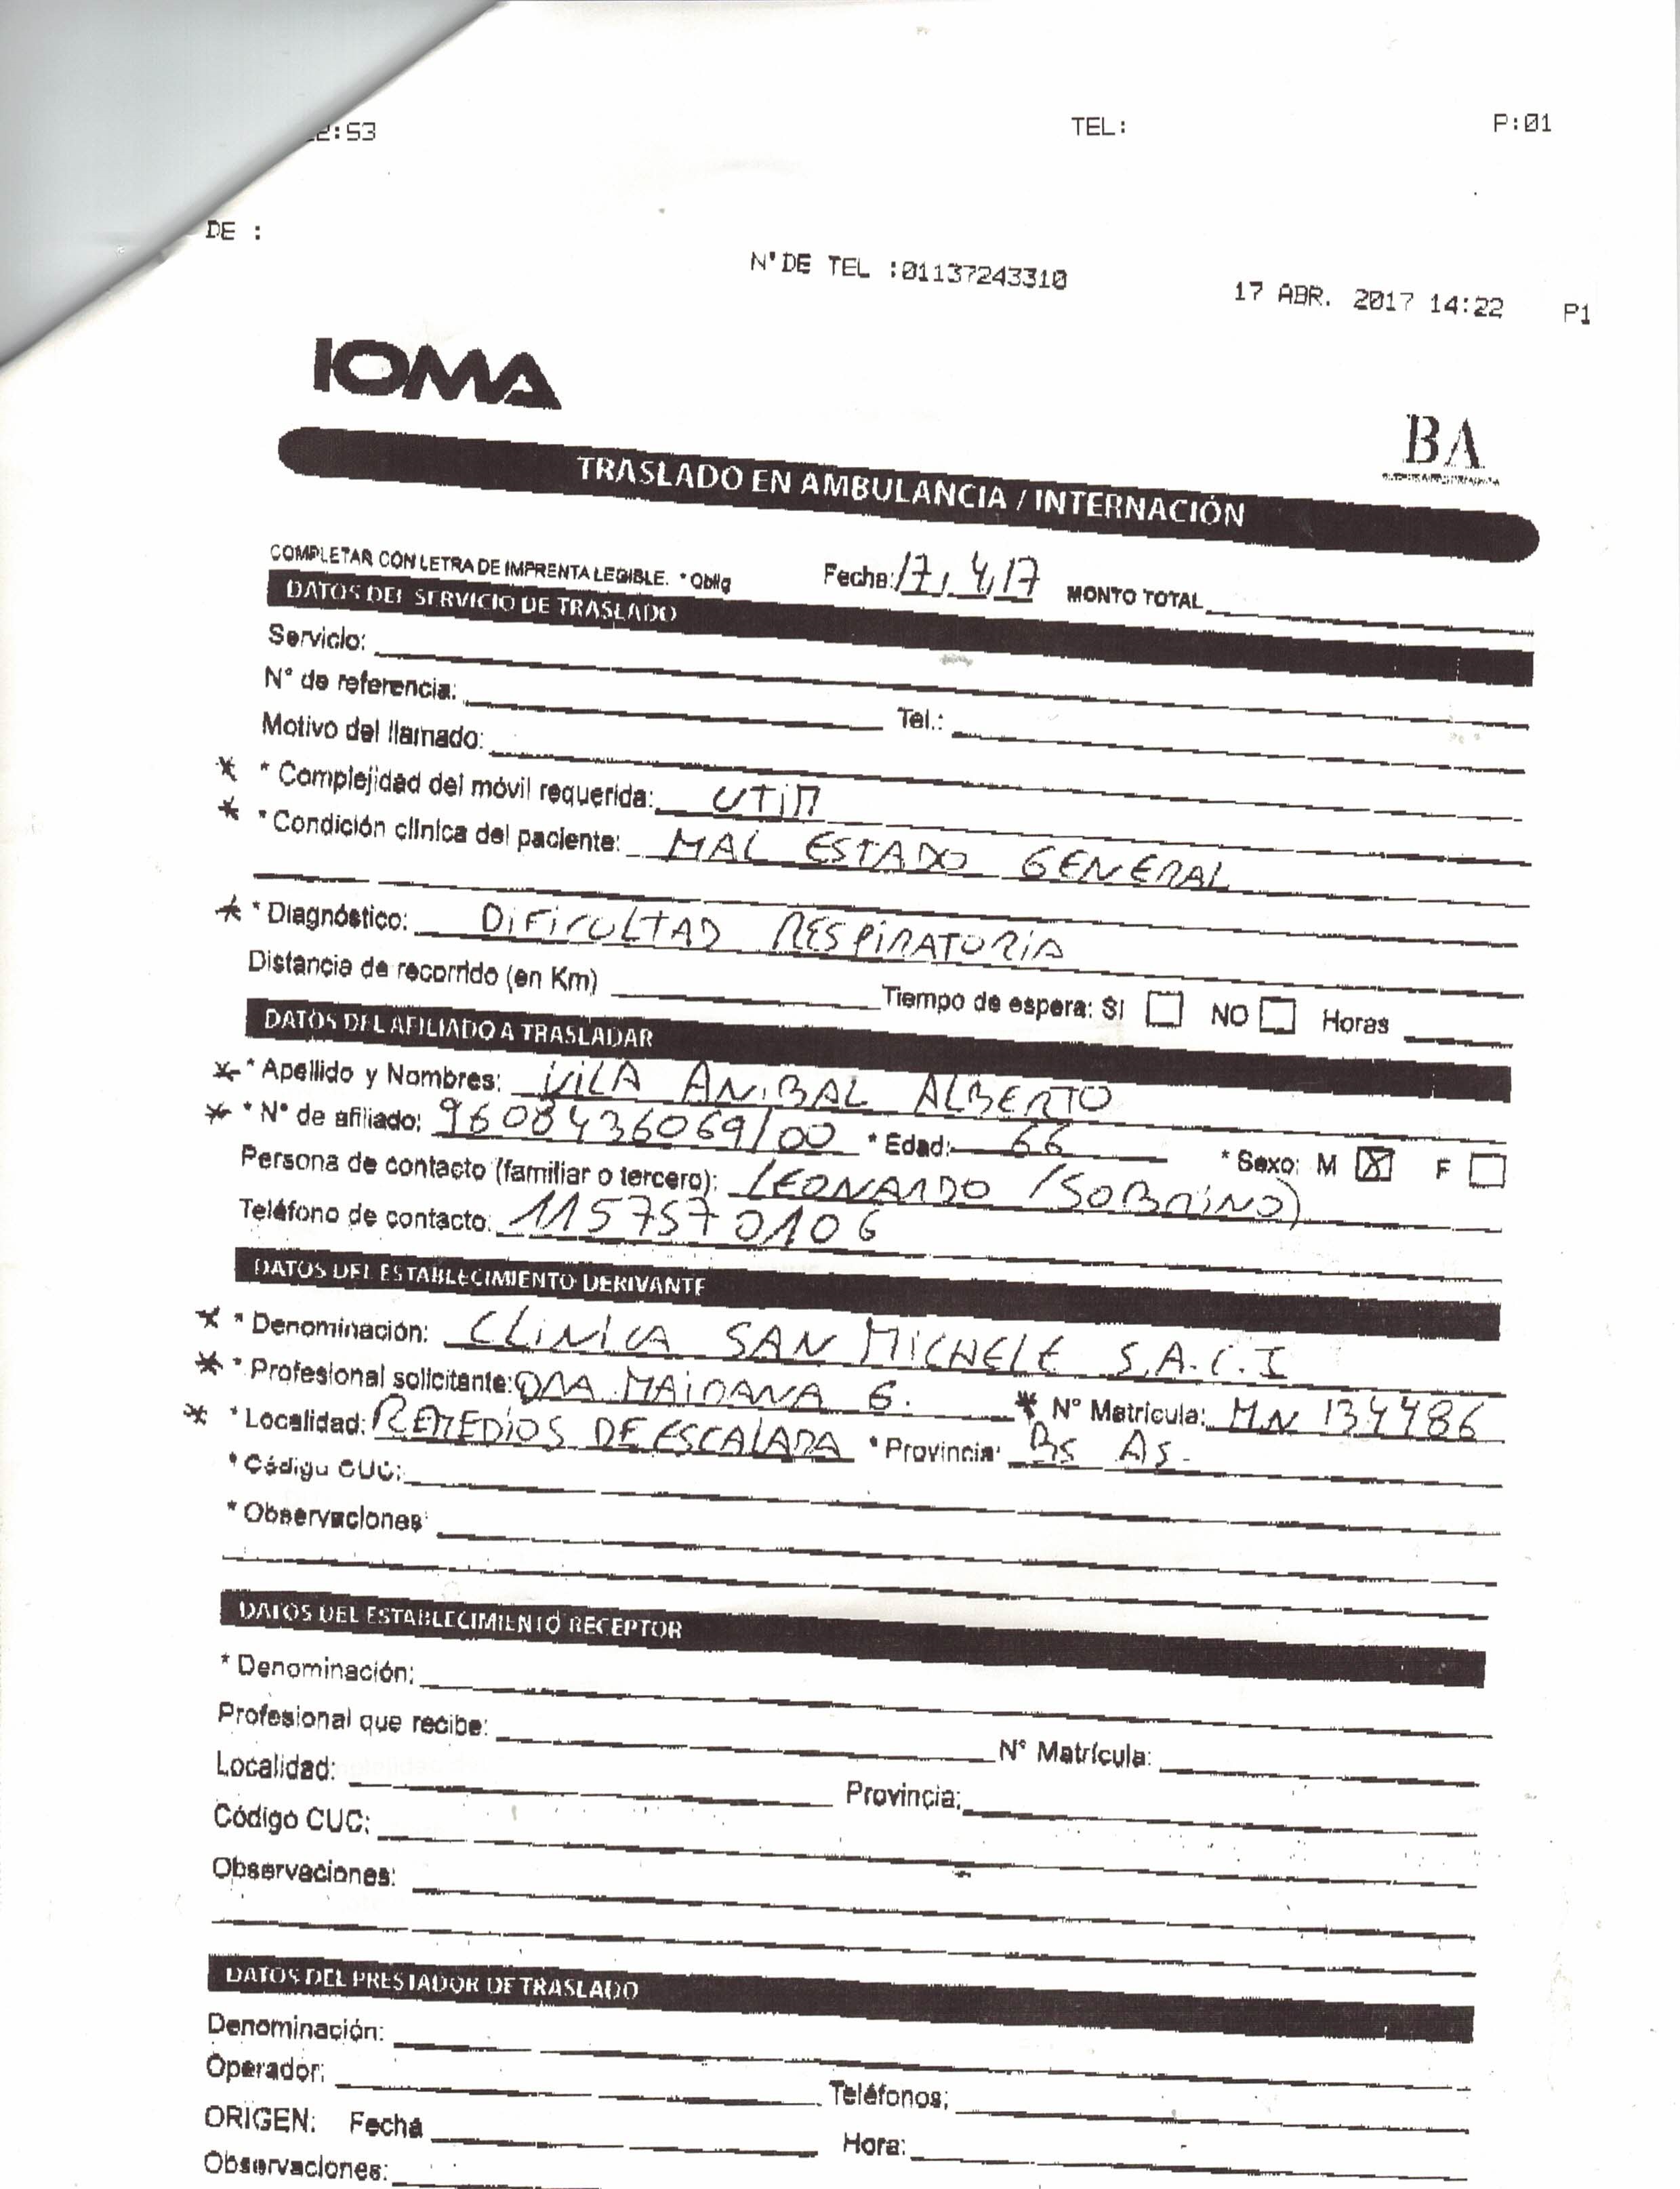 2:53 TEL: P:01
DE :
N° DE TEL :01137243310 17 ABR. 2017 14:22 P1
IOMA
BA
TRASLADO EN AMBULANCIA / INTERNACIÓN
COMPLETAR CON LETRA DE IMPRENTA LEGIBLE. * Oblig Fecha: 17, 4, 17 MONTO TOTAL
DATOS DEL SERVICIO DE TRASLADO
Servicio:
N° de referencia: Tel.:
Motivo del llamado:
* * Complejidad del móvil requerida: UTIM
* * Condición clínica del paciente: MAL ESTADO GENERAL
* * Diagnóstico: DIFICULTAD RESPIRATORIA
Distancia de recorrido (en Km) Tiempo de espera: SI NO Horas
DATOS DEL AFILIADO A TRASLADAR
* * Apellido y Nombres: VILA ANIBAL ALBERTO
* * N° de afiliado: 9608436069/00 * Edad: 66 * Sexo: M X F
Persona de contacto (familiar o tercero): LEONARDO (SOBRINO)
Teléfono de contacto: 1157570106
DATOS DEL ESTABLECIMIENTO DERIVANTE
* * Denominación: CLINICA SAN MICHELE S.A.C.I
* * Profesional solicitante: DRA MAIDANA G. * N° Matrícula: MN 134486
* * Localidad: REMEDIOS DE ESCALADA * Provincia: Bs As.
* Código CUC:
* Observaciones:
DATOS DEL ESTABLECIMIENTO RECEPTOR
* Denominación:
Profesional que recibe: N° Matrícula:
Localidad: Provincia:
Código CUC:
Observaciones:
DATOS DEL PRESTADOR DE TRASLADO
Denominación:
Operador: Teléfonos:
ORIGEN: Fecha Hora:
Observaciones: